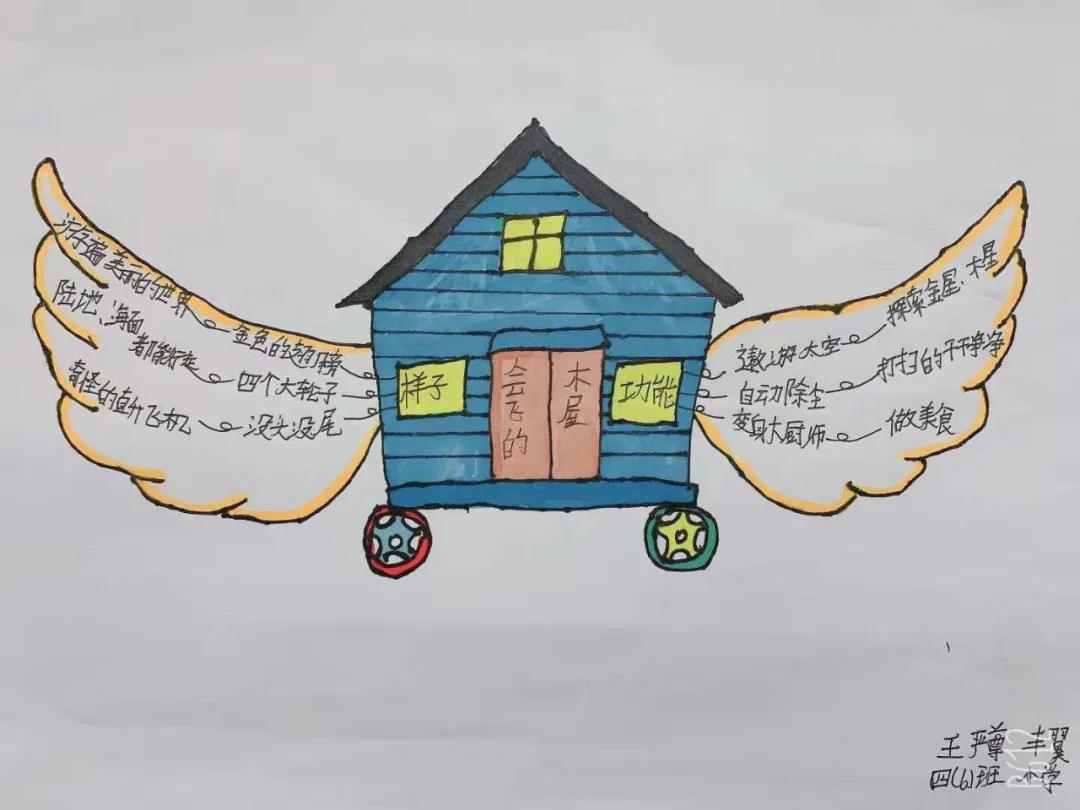 游遍美丽的世界
金色的翅膀
陆地、海面
都能行走
四个大轮子
奇怪的直升飞机
没头没尾
样子
会飞的
木屋
功能
遨游太空
探索金星、木星
自动除尘
打扫的干干净净
变身大厨师
做美食
王严尊 丰翼
四(6)班 小学